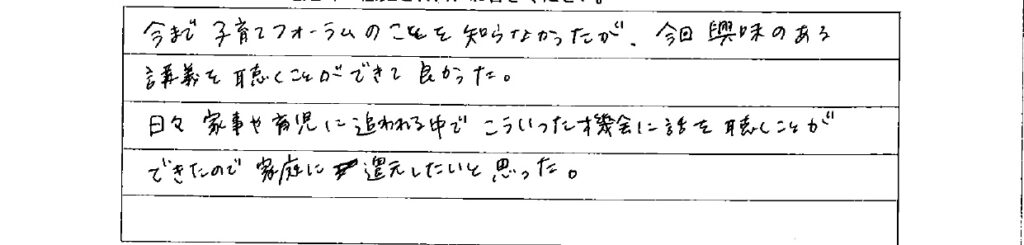 今まで子育てフォーラムのことを知らなかったが、今回興味のある
講義を聴くことができて良かった。
日々家事や育児に追われる中でこういった機会に話を聴くことが
できたので家庭に還元したいと思った。